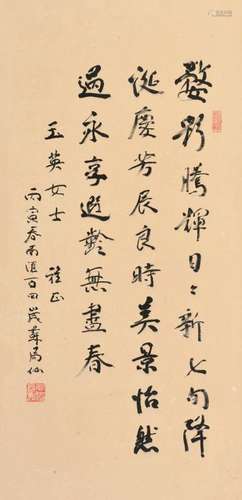 婺彩腾輝日々新七旬降
诞慶芳辰良時美景怡然
過永享遐齡無盡春
玉英女士 雅正
丙寅春雨洹百四歲蘇局仙